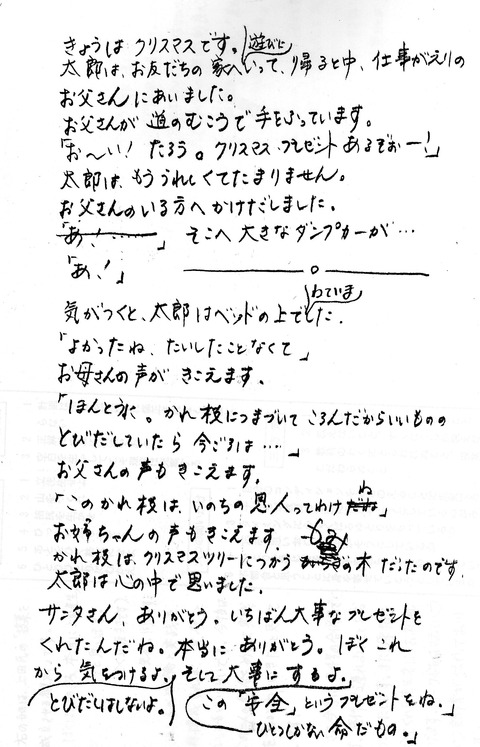 きょうは クリスマスです。遊びに
太郎は、お友だちの 家へいって、り帰ると中、仕事がえりの
お父さんにあいました。
お父さんが 道のむこうで手をふっています。
「お〜い! たろう。クリスマス・プレゼント あるぞぉー!」
太郎は、もううれしくてたまりません。
お父さんのいる方へかけだしました。
「あ!……」 そこへ 大きなダンプカーが…
「あ、!」
気がつくと、太郎はベッドの上でした.
ねていま
「よかったね、たいしたことなくて」
お母さんの声が きこえます.
「ほんとうに。かれ枝につまづいて ころんだからいいものの
とびだしていたら 今ごろは…」
お父さんの声もきこえます.
「このかれ枝は、いのちの恩人ってわけだね」
ね
お姉ちゃんの声もきこえます.
かれ枝は、クリスマスツリーにつかう の木 だったのです.
もみ
太郎は心の中で思いました.
サンタさん、ありがとう。いちばん大事なプレゼントを
くれたんだね。本当に ありがとう。ぼく これ
から 気をつけるよ。そして大事にするよ.
とびだしはしないよ。
この「安全」というプレゼントをね.
ひとつしかない 命だもの。」